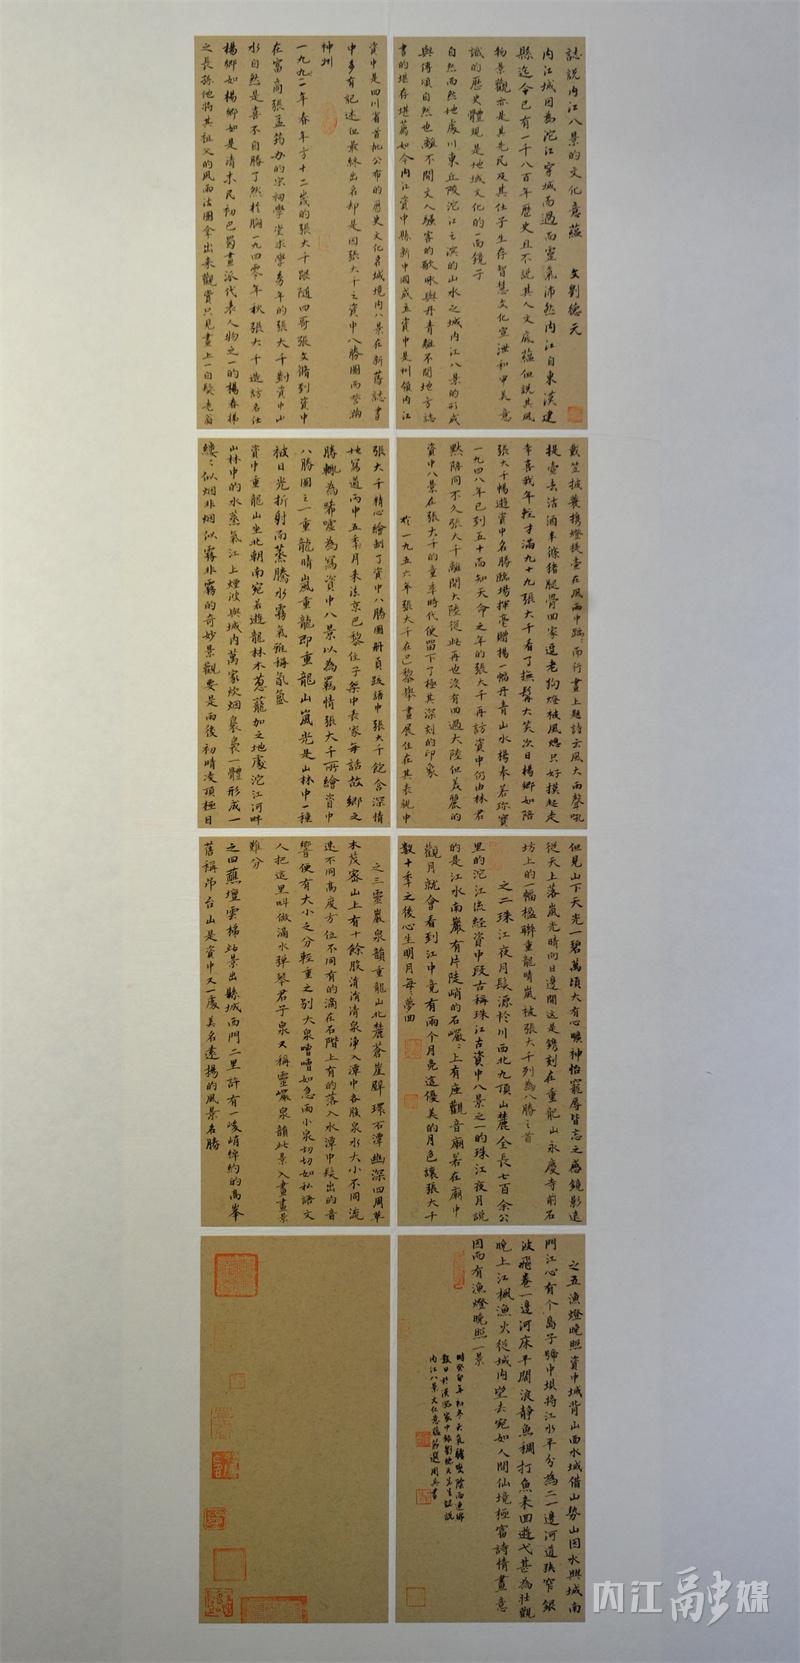 誌說內江八景的文化意蘊　文劉德元
內江城因為沱江穿城而過而靈氣沛然內江自東漢建
縣迄今已有一千八百年歷史且不說其人文底蘊但說其風
物景觀亦是其先民及其仕子生存智慧文化宣泄和审美意
識的歷史體現是地域文化的一面鏡子
自然而然地處川東丘陵沱江之濱的山水之城內江八景的形成
與傳頌自然也離不開文人騷客的歌咏與丹青離不開地方誌
書的堪存堪蔦如今內江資中縣新中國成立資中是州領內江
資中是四川省首批公布的歷史文化名城境內八景在新舊誌書
中多有記述但最終出名却是因張大千之資中八勝圖而譽瀚
神州
一九九二年春年方十二歲的張大千跟隨四哥張文脩到資中
在富商張孟筠办的宗祠學堂求學青年的張大千對資中山
水自然是喜不自勝了然於胸一九四零年秋張大千造訪名仕
楊鄉如楊鄉如是清末民初巴蜀畫派代表人物之一的楊春梯
之長孫他將其祖父的風雨沽圖拿出來觀賞只見畫上一白髮老翁
戴笠披蓑携燈提壺在風雨中踽踽而行畫上題詩云風大雨聲吼
提壺去沽酒半條猪腿骨回家逗老狗燈被風熄只好摸起走
幸喜我年輕才滿九十九張大千看了撫髯大笑次日楊鄉如陪
張大千暢遊資中名勝臨場揮毫贈楊一幅丹青山水楊奉若珍寶
一九四八年已到五十而知天命之年的張大千再訪資中仍由林君
默陪同不久張大千離開大陸從此再也沒有回過大陸但美麗的
資中八景在張大千的童年時代便留下了極其深刻的印象
於一九五六年張大千在巴黎舉畫展住在其表親中
張大千精心繪制了資中八勝圖册頁跋語中張大千飽含深情
地寫道丙申五季月来法京巴黎住子桀中表家每話故鄉之
勝輒為唏噓為寫資中八景以為羈情張大千所繪資中
八勝圖之一重龍晴嵐重龍即重龍山嵐光是山林中一種
被日光折射而蒸騰水霧氣雅稱氤氲
資中重龍山坐北朝南宛若遊龍林木葱蘢加之地處沱江河畔
山林中的水蒸氣江上煙波與城內萬家炊烟裊裊一體形成一
縷縷似烟非烟似霧非霧的奇妙景觀要是雨後初晴凌頂極目
但見山下天光一碧萬頃大有心曠神怡寵辱皆忘之感鏡影遠
從天上落嵐光時向日邊開这是鐫刻在重龍山永慶寺前石
坊上的一幅楹聯重龍晴嵐被張大千列為八勝之首
之二珠江夜月发源於川西北九頂山麓全長七百余公
里的沱江流經資中段古稱珠江古資中八景之一的珠江夜月說
的是江水南巖有片陡峭的石巖巖上有座觀音廟若在廟中
觀月就會看到江中竟有兩個月亮這優美的月色讓張大千
數十年之後心生明月每每夢回
之三靈巖泉韻重龍山北麓蒼崖壁環石潭幽深四周草
木茂密山上有十餘股涓涓清泉净入潭中各股泉水大小不同流
速不同高度方位不同有的滴在石階上有的落入水潭中發出的音
響便有大小之分輕重之别大泉嘈嘈如急雨小泉切切如私語文
人把這里叫做滴水弹琴君子泉又稱靈巖泉韻此景入畫畫景
難分
之四醮壇雲梯站景出縣城西門二里許有一峻峭綽約的高峯
舊稱吊台山是資中又一處美名遠揚的風景名勝
之五漁燈晚照資中城背山面水城借山勢山因水興城南
門江心有个島子嘣中埧將江水平分為二一邊河道狭窄銀
波飛卷一邊河床平闊浪靜魚稠打魚来回遊弋甚為壯觀
晚上江楓漁火從城內望去宛如人間仙境極富詩情畫意
因而有漁燈晚照一景
內江八景文化意蘊節選周兵書
内江融媒